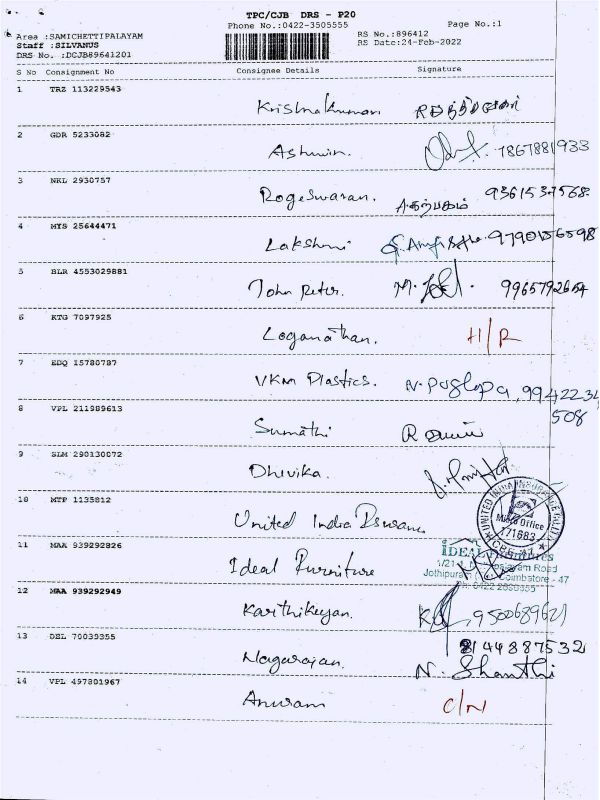 TPC/CJB DRS - P20
Phone No.:0422-3505555
Page No.:1
Area :SAMICHETTIPALAYAM
Staff :SILVANUS
DRS No. :DCJB89641201
RS No.:896412
RS Date:24-Feb-2022
S No Consignment No Consignee Details Signature
1 TRZ 113229543
Krishnakumar
2 GDR 5233082
Ashwin. 7867881933
3 NKL 2930757
Rogeswaran. 9361537568
4 MYS 25644471
Lakshmi 9790156598
5 BLR 4553029881
John Peter. 9965792654
6 KTG 7097925
Loganathan. H/R
7 EDQ 15780787
VKM Plastics. 9942234
508
8 VPL 211989613
Sumathi
9 SLM 290130072
Dhivika.
10 MTP 1135812
United India Insurance
UNITED INDIA
Micro Office
171683
11 MAA 939292826
Ideal Furniture
IDEAL
Jothipuram Coimbatore - 47
12 MAA 939292949
Karthikeyan. 9500689621
13 DEL 70039355
Nagarajan. 8144887532
N. Shanthi
14 VPL 497801967
Anuram C/N